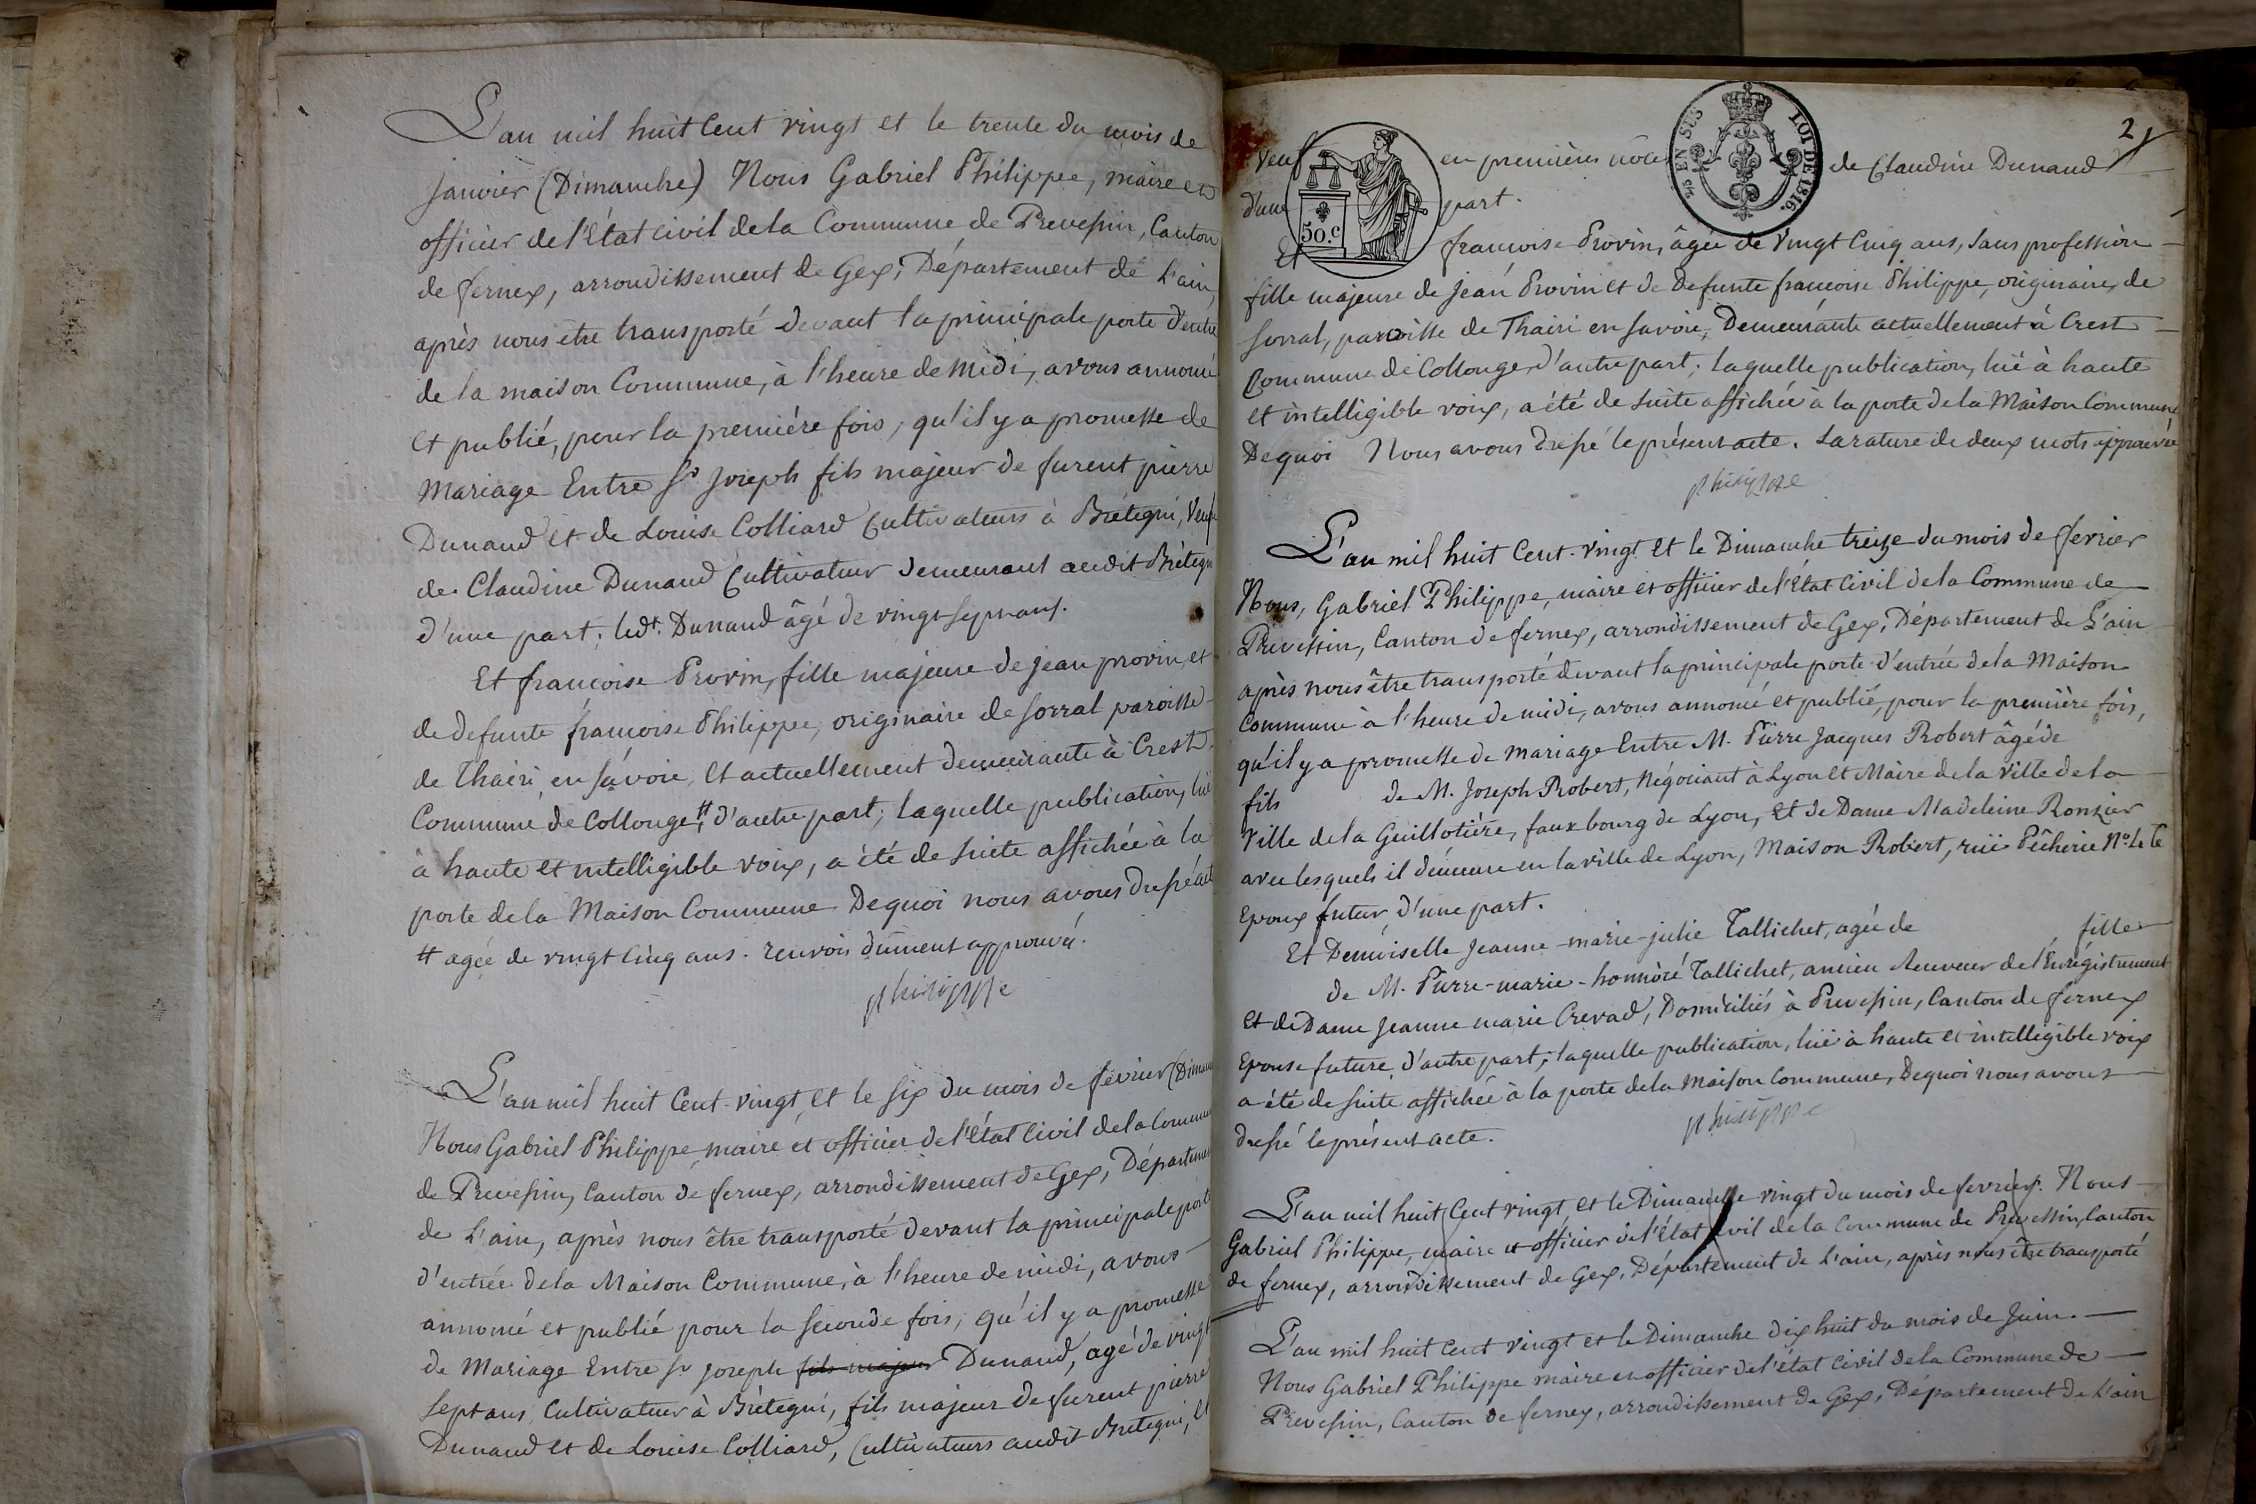 L'an mil huit Cent vingt et le trente du mois de
Janvier (Dimanche) Nous Gabriel Philippe, maire et
officier de l'État civil de la Commune de Prevessin, Canton
de fernex, arrondissement de Gex, Département de L'ain,
après nous être transporté devant la principale porte d'entrée
de la maison Commune, à l'heure de midi, avons annoncé
et publié, pour la première fois, qu'il y a promesse de
Mariage Entre Sr Joseph fils majeur de furent pierre
Dunand et de Louise Colliard Cultivateurs à Brétegni, Veuf
de Claudine Dunand Cultivateur demeurant audit Brétegni
d'une part; ledt. Dunand âgé de vingt sept ans.
Et françoise Provin, fille majeure de jean provin, et
de defunte françoise Philippe, originaire de Sorral paroisse
de Thairi en Savoie, Et actuellement demeurante à Crest
Commune de Collonge #, d'autre part; laquelle publication, lüe
à haute et intelligible voix, a été de suite affichée à la
porte de la Maison Commune Dequoi nous avons dressé acte
# agée de vingt Cinq ans. renvoi dûment approuvé.
philippe
L'an mil huit Cent-vingt et le six du mois de fevrier (Diman
Nous Gabriel Philippe maire et officier de l'État Civil de la Commune
de Prevessin, Canton de fernex, arrondissement de Gex, Département
de L'ain, après nous être transporté devant la principale porte
d'entrée de la Maison Commune, à l'heure de midi, avons
annoncé et publié pour la seconde fois, qu'il y a promesse
de Mariage Entre Sr Joseph fils majeur Dunand, agé de vingt
Sept ans, Cultivateur à Brétegni, fils majeur de furent pierre
Dunand et de Louise Colliard, Cultivateurs audit Bretegni, et
2
veuf en premières nôces de Claudine Dunand
d'une part.
50.c
EN SUS
LOI DE 1816.
Et françoise Provin, âgée de Vingt Cinq ans, sans profession
fille majeure de Jean Provin et de Defunte françoise Philippe, originaire, de
Sorral, paroisse de Thairi en Savoie, Demeurante actuellement à Crest
Commune de Collonge, d'autre part; laquelle publication, lüe à haute
et intelligible voix, a été de suite affichée à la porte de la Maison Commune
Dequoi Nous avons dressé le présent acte. La rature de deux mots approuvée
philippe
L'an mil huit Cent-vingt et le Dimanche treize du mois de fevrier
Nous, Gabriel Philippe, maire et officier de l'État Civil de la Commune de
Prevessin, Canton de fernex, arrondissement de Gex, Département de L'ain
après nous être transporté devant la principale porte d'entrée de la Maison
Commune à l'heure de midi, avons annoncé et publié, pour la première fois,
qu'il y a promesse de mariage Entre M. Pierre Jacques Robert âgé de
fils de M. Joseph Robert, Négociant à Lyon et Maire de la ville de la
Ville de la Guillotière, fauxbourg de Lyon, et de Dame Madeleine Ronzier
avec lesquels il demeure en la ville de Lyon, Maison Robert, rüe Pêcherie No.
Epoux futur, d'une part.
Et Demoiselle Jeanne-marie-julie Tallichet, agée de fille
de M. Pierre-marie-honnoré Tallichet, ancien Receveur de l'Enrégistrement
et de Dame Jeanne marie Crevad, Domiciliés à Prevessin, Canton de fernex
Epouse future, d'autre part; laquelle publication, lüe à haute et intelligible voix
a été de suite affichée à la porte de la maison Commune, Dequoi nous avons
dressé le présent acte.
philippe
L'an mil huit Cent vingt et le Dimanche vingt du mois de fevrier. Nous
Gabriel Philippe, maire et officier de l'état Civil de la Commune de Prevessin, Canton
de fernex, arrondissement de Gex, Département de L'ain, après nous être transporté
L'an mil huit Cent vingt et le Dimanche dix huit du mois de Juin.
Nous Gabriel Philippe maire et officier de l'état Civil de la Commune de
Prevessin, Canton de fernex, arrondissement de Gex, Département de L'ain